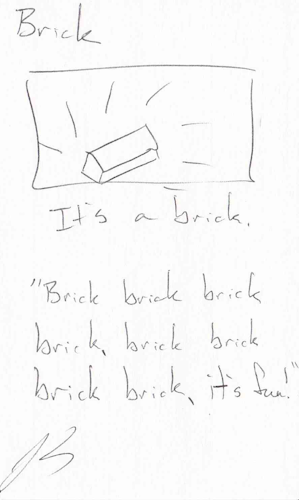 Brick
It's a brick.
"Brick brick brick
brick, brick brick
brick brick, it's fun!"